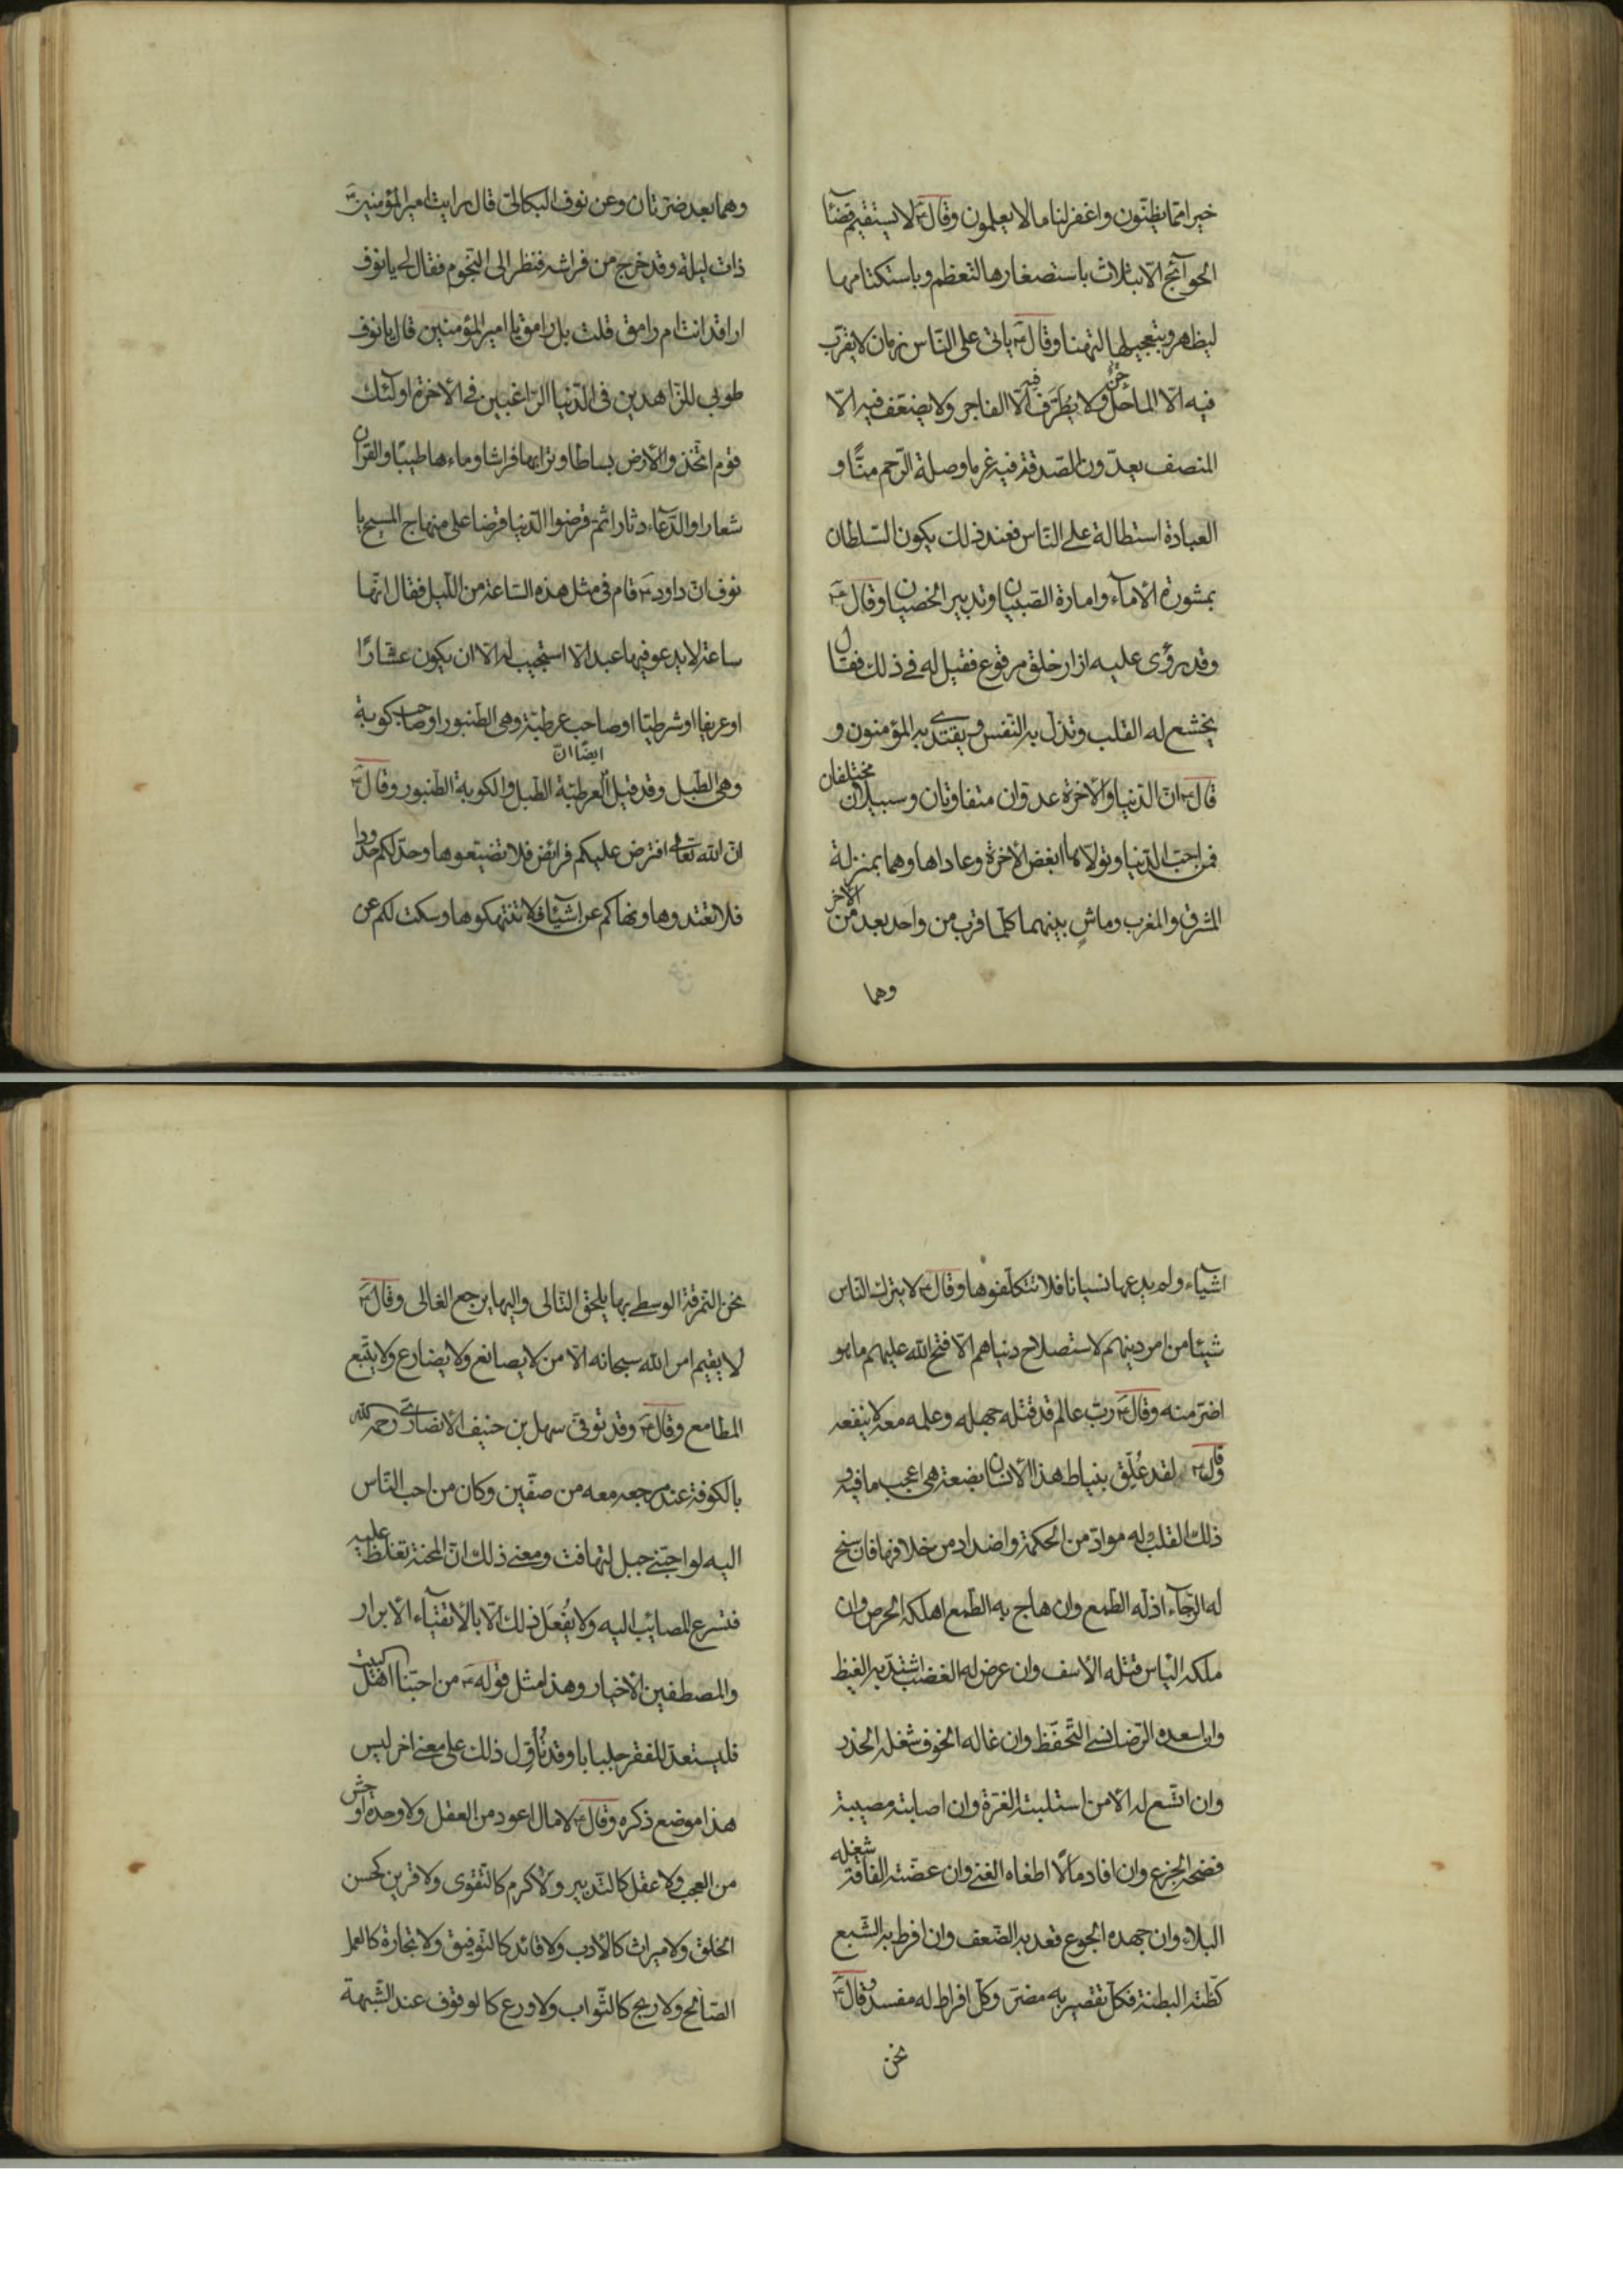 خيرا مما يظنّون واغفر لنا ما لا يعلمون وقال ع لا يستقيم قضآء
الحوآئج الّا بثلاث باستصغارها لتعظم وباستكتامها
ليظهر وبتعجيلها لتهنأ وقال ع ياتى على النّاس زمان لا يقرّب
فيه الّا الماحل ولا يُظرَّف فيه الّا الفاجر ولا يضعّف فيه الّا
المنصف يعدّون الصّدقة فيه غرما وصلة الرّحم منًّا و
العبادة استطالة على النّاس فعند ذلك يكون السّلطان
بمشورة الأمآء وامارة الصّبيان وتدبير الخصيان وقال ع
وقد رؤى عليه ازار خلق مرقوع فقيل له فى ذلك فقال
يخشع له القلب وتذلّ به النّفس ويقتدى به المؤمنون و
قال ع انّ الدّنيا والأخرة عدوّان متفاوتان وسبيلان مختلفان
فمن احبّ الدّنيا وتولّاها ابغض الأخرة وعاداها وهما بمنزلة
المشرق والمغرب وماشٍ بينهما كلّما قرب من واحد بعد من الأخر
وهما
وهما بعد ضرّتان وعن نوف البكالىّ قال رايت امير المؤمنين ع
ذات ليلة وقد خرج من فراشه فنظر الى النّجوم فقال لى يا نوف
اراقد انت ام رامق قلت بل رامق يا امير المؤمنين قال يا نوف
طوبى للزّاهدين فى الدّنيا الرّاغبين فى الأخرة اولئك
قوم اتّخذوا الأرض بساطا وترابها فراشا وماءها طيبًا والقران
شعارا والدّعآء دثارا ثمّ قرضوا الدّنيا قرضا على منهاج المسيح يا
نوف انّ داود ع قام فى مثل هذه السّاعة من اللّيل فقال انّها
ساعة لا يدعو فيها عبد الّا استجيب له الّا ان يكون عشّارًا
او عريفا او شرطيّا او صاحب عرطبة وهى الطّنبور او صاحب كوبة
وهى الطّبل وقد قيل ايضًا انّ العرطبة الطّبل والكوبة الطّنبور وقال ع
انّ الله تعالى افترض عليكم فرائض فلا تضيّعوها وحدّ لكم حدودا
فلا تعتدوها ونهاكم عن اشيآء فلا تنتهكوها وسكت لكم عن
اشيآء ولم يدعها نسيانا فلا تتكلّفوها وقال ع لا يترك النّاس
شيئا من امر دينهم لاستصلاح دنياهم الّا فتح الله عليهم ما هو
اضرّ منه وقال ع ربّ عالم قد قتله جهله وعلمه معه لا ينفعه
وقال ع لقد عُلّق بنياط هذا الأنسان بضعة هى اعجب ما فيه و
ذلك القلب وله موادّ من الحكمة واضداد من خلافها فان سنح
له الرّجآء اذلّه الطّمع وان هاج به الطّمع اهلكه الحرص وان
ملكه الياس قتله الأسف وان عرض له الغضب اشتدّ به الغيظ
وان اسعده الرّضا نسى التّحفّظ وان غاله الخوف شغله الحذر
وان اتّسع له الأمن استلبته الغرّة وان اصابته مصيبة
فضحه الجزع وان افاد مالًا اطغاه الغنى وان عضّته الفاقة شغله
البلاء وان جهده الجوع قعد به الضّعف وان افرط به الشّبع
كظّته البطنة فكلّ تقصير به مضرّ وكلّ افراط له مفسد وقال ع
نحن
نحن النّمرقة الوسطى بها يلحق التّالى واليها يرجع الغالى وقال ع
لا يقيم امر الله سبحانه الّا من لا يصانع ولا يضارع ولا يتّبع
المطامع وقال ع وقد توفّى سهل بن حنيف الأنصارى رحمه الله
بالكوفة عند مرجعه معه من صفّين وكان من احب النّاس
اليه لو احبّنى جبل لتهافت ومعنى ذلك انّ المحنة تغلظ عليه
فتسرع المصائب اليه ولا يُفعَل ذلك الّا بالأتقيآء الأبرار
والمصطفين الأخيار وهذا مثل قوله ع من احبّنا اهل البيت
فليستعدّ للفقر جلبابا وقد تُأوّل ذلك على معنى اخر ليس
هذا موضع ذكره وقال ع لا مال اعود من العقل ولا وحدة اوحش
من العجب ولا عقل كالتّدبير ولا كرم كالتّقوى ولا قرين كحسن
الخلق ولا ميراث كالأدب ولا قائد كالتّوفيق ولا تجارة كالعمل
الصّالح ولا ربح كالثّواب ولا ورع كالوقوف عند الشّبهة